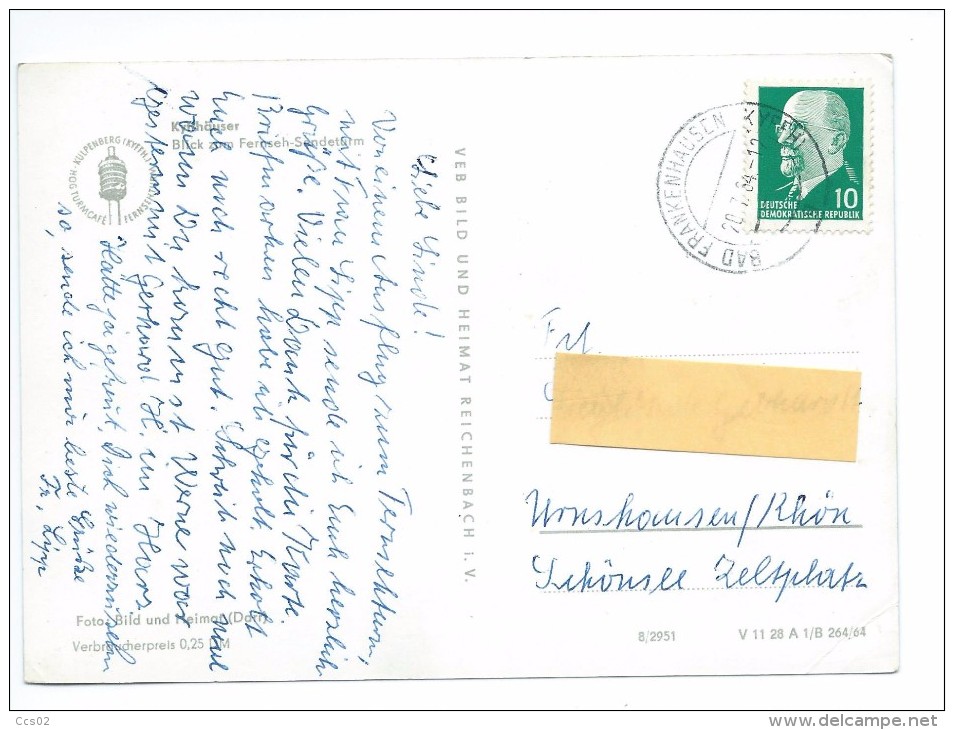 Kyffhäuser
Blick zum Fernseh-Sendeturm
HOG TURMCAFÉ KULPENBERG (KYFFH.)
Liebe Linde!
Von einem Ausflug zum Fernsehturm,
mit Frau Lipp sende ich Euch herzliche
Grüße. Vielen Dank für die Karte.
habe ich geholt. Erholt
Euch noch recht gut. Schreib noch mal
wann Du kommst. Werne war
gestern mit Gerhard H. im Harz.
Hätte ja gerne Dich wiedersehen
so, sende ich nur beste Grüße
Fr. Lipp
Foto: Bild und Heimat (Darr)
Verbraucherpreis 0,25 DM
VEB BILD UND HEIMAT REICHENBACH i. V.
BAD FRANKENHAUSEN (KYFFH)
20.7.64-12
DEUTSCHE
DEMOKRATISCHE REPUBLIK
10
Frl.
Urnshausen/Rhön
Schönsee Zeltplatz
8/2951
V 11 28 A 1/B 264/64
Ccs02
www.delcampe.net